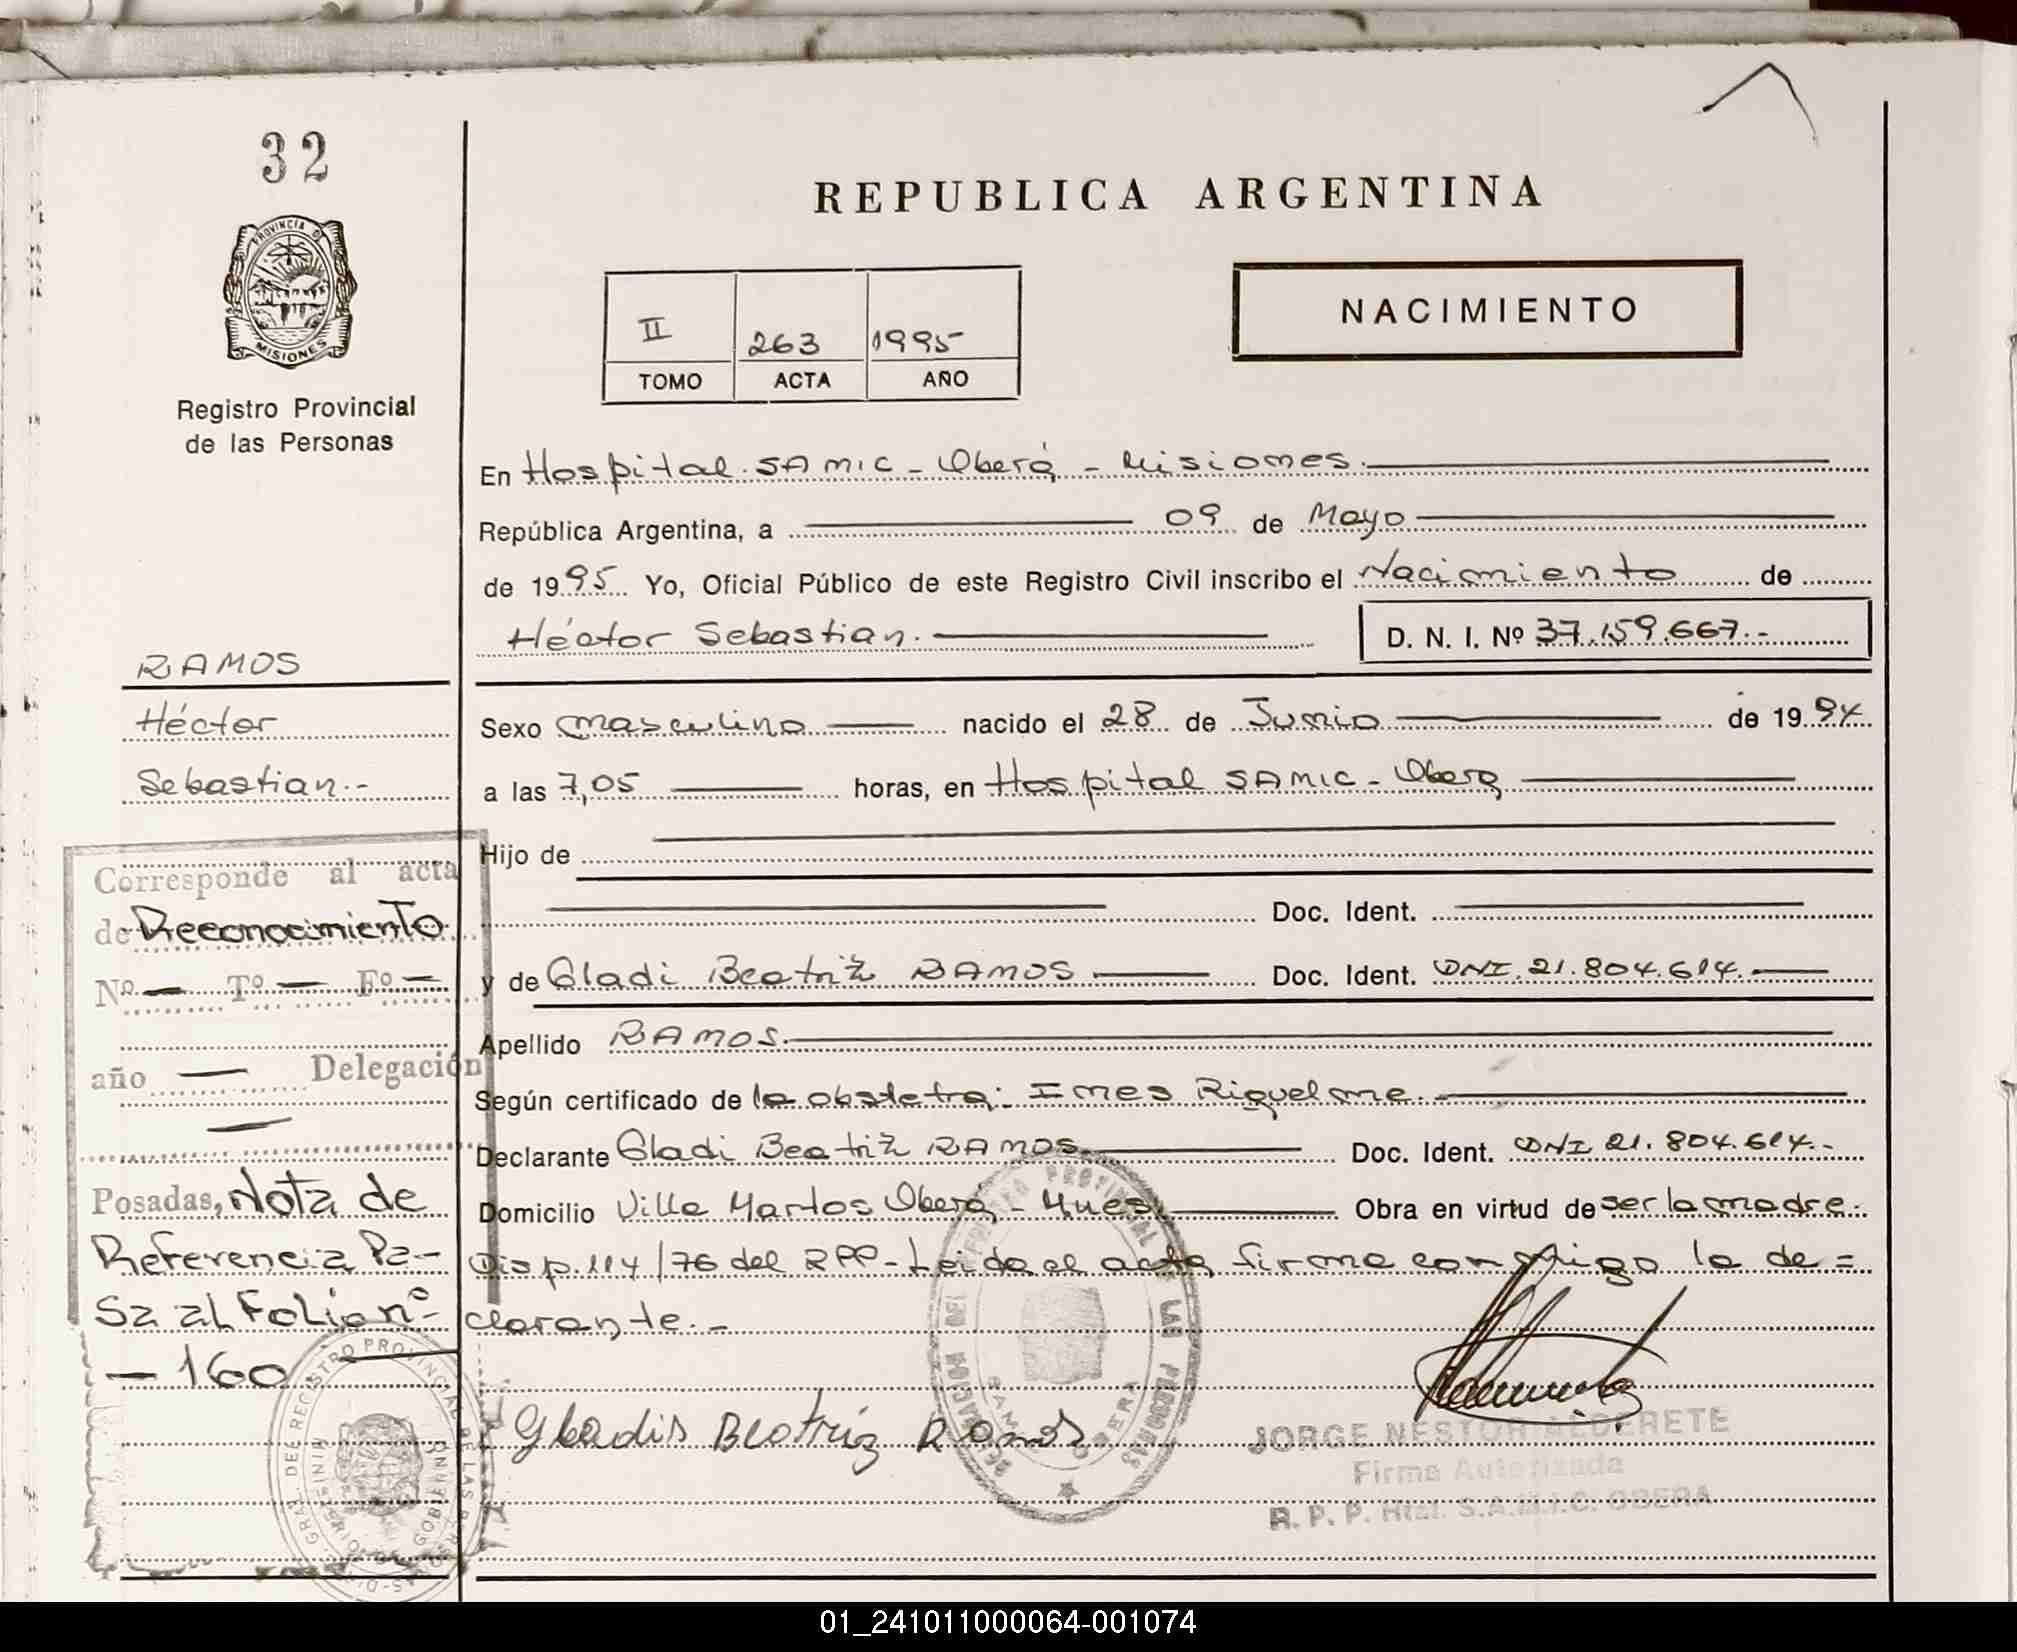 32
PROVINCIA DE
MISIONES
Registro Provincial
de las Personas
REPUBLICA ARGENTINA
II 263 1995
TOMO ACTA AÑO
NACIMIENTO
En Hospital SAMIC - Oberá - Misiones.
República Argentina, a 09 de Mayo
de 1995 Yo, Oficial Público de este Registro Civil inscribo el Nacimiento de
Héctor Sebastian. D. N. I. Nº 37.159.667.-
RAMOS
Héctor
Sebastian.-
Sexo masculino nacido el 28 de Junio de 1994
a las 7,05 horas, en Hospital SAMIC - Oberá
Hijo de
Doc. Ident.
y de Gladi Beatriz RAMOS Doc. Ident. DNI. 21.804.614.
Apellido RAMOS.
Según certificado de la obstetra: Ines Riquelme.
Declarante Gladi Beatriz RAMOS Doc. Ident. DNI 21.804.614.-
Domicilio Villa Martos Oberá - Mnes. Obra en virtud de ser la madre.
Disp. 114/76 del RPP - Leida el acta firma conmigo la de=
clarante.-
Corresponde al acta
de Reconocimiento
Nº — Tº — Fº —
año — Delegación
—
Posadas, Nota de
Referencia Pa-
sa al Folio nº
- 160
Gladis Beatriz Ramos
JORGE NESTOR ALDERETE
Firma Autorizada
R. P. P. Htal. S.A.M.I.C. OBERA
DELEGACION DEL REGISTRO PROVINCIAL DE LAS PERSONAS
SAMIC OBERA
DIRECCION GRAL. DEL REGISTRO PROVINCIAL DE LAS PERSONAS
MINISTERIO DE GOBIERNO
01_241011000064-001074